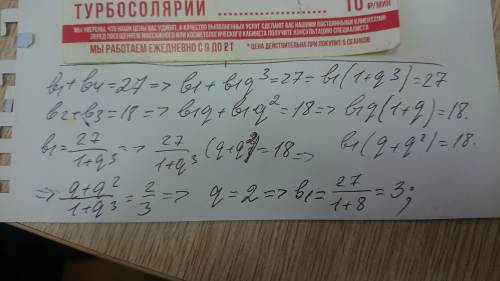 ТУРБОСОЛЯРИЙ .................. 10 Р/МИН
МЫ УВЕРЕНЫ, ЧТО НАШИ ЦЕНЫ ВАС УДИВЯТ, А КАЧЕСТВО ВЫПОЛНЕННЫХ УСЛУГ СДЕЛАЕТ ВАС НАШИМИ ПОСТОЯННЫМИ КЛИЕНТАМИ
ПЕРЕД ПОСЕЩЕНИЕМ МАССАЖНОГО ИЛИ КОСМЕТОЛОГИЧЕСКОГО КАБИНЕТА ПОЛУЧИТЕ КОНСУЛЬТАЦИЮ СПЕЦИАЛИСТА
МЫ РАБОТАЕМ ЕЖЕДНЕВНО С 9 ДО 21 * ЦЕНА ДЕЙСТВИТЕЛЬНА ПРИ ПОКУПКЕ 5 СЕАНСОВ
b1+b4=27=> b1+b1q³=27=b1(1+q³)=27
b2+b3=18=> b1q+b1q²=18=> b1q(1+q)=18.
b1=27/1+q³ => 27/1+q³ (q+q²)=18=> b1(q+q²)=18.
=> q+q²/1+q³ = 2/3 => q=2=> b1=27/1+8=3;